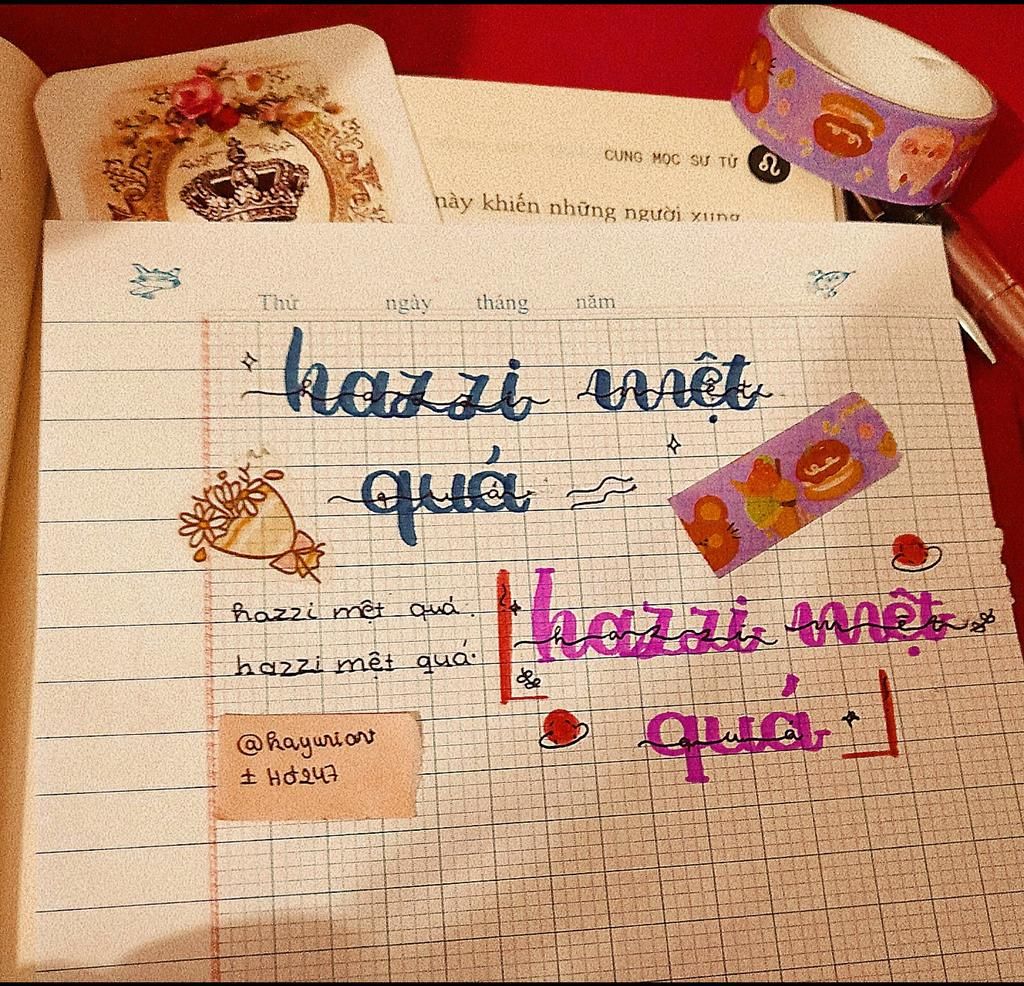 CUNG MỌC SƯ TỬ
này khiến những người xung
Thứ ngày tháng năm
hazzi mệt
quá
hazzi mệt quá.
hazzi mệt quá.
hazzi mệt
quá
@hayuriart
± Hd247